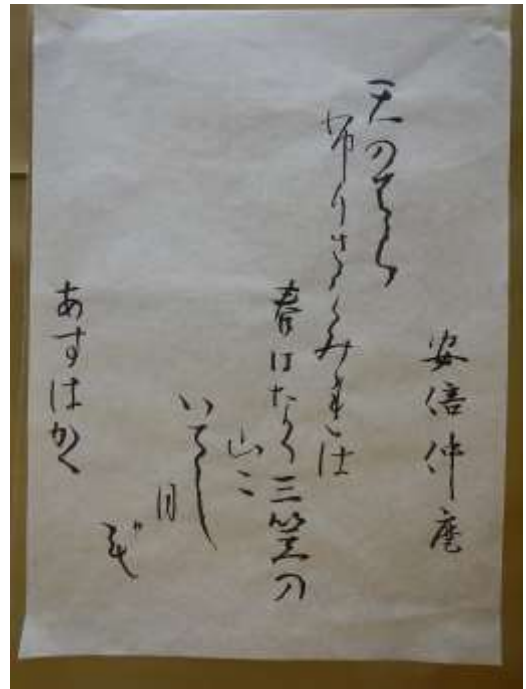 安倍仲麿
天のはら
布りさけみれは
春日なる三笠の
山に
いてし
月
かも
あすはかく